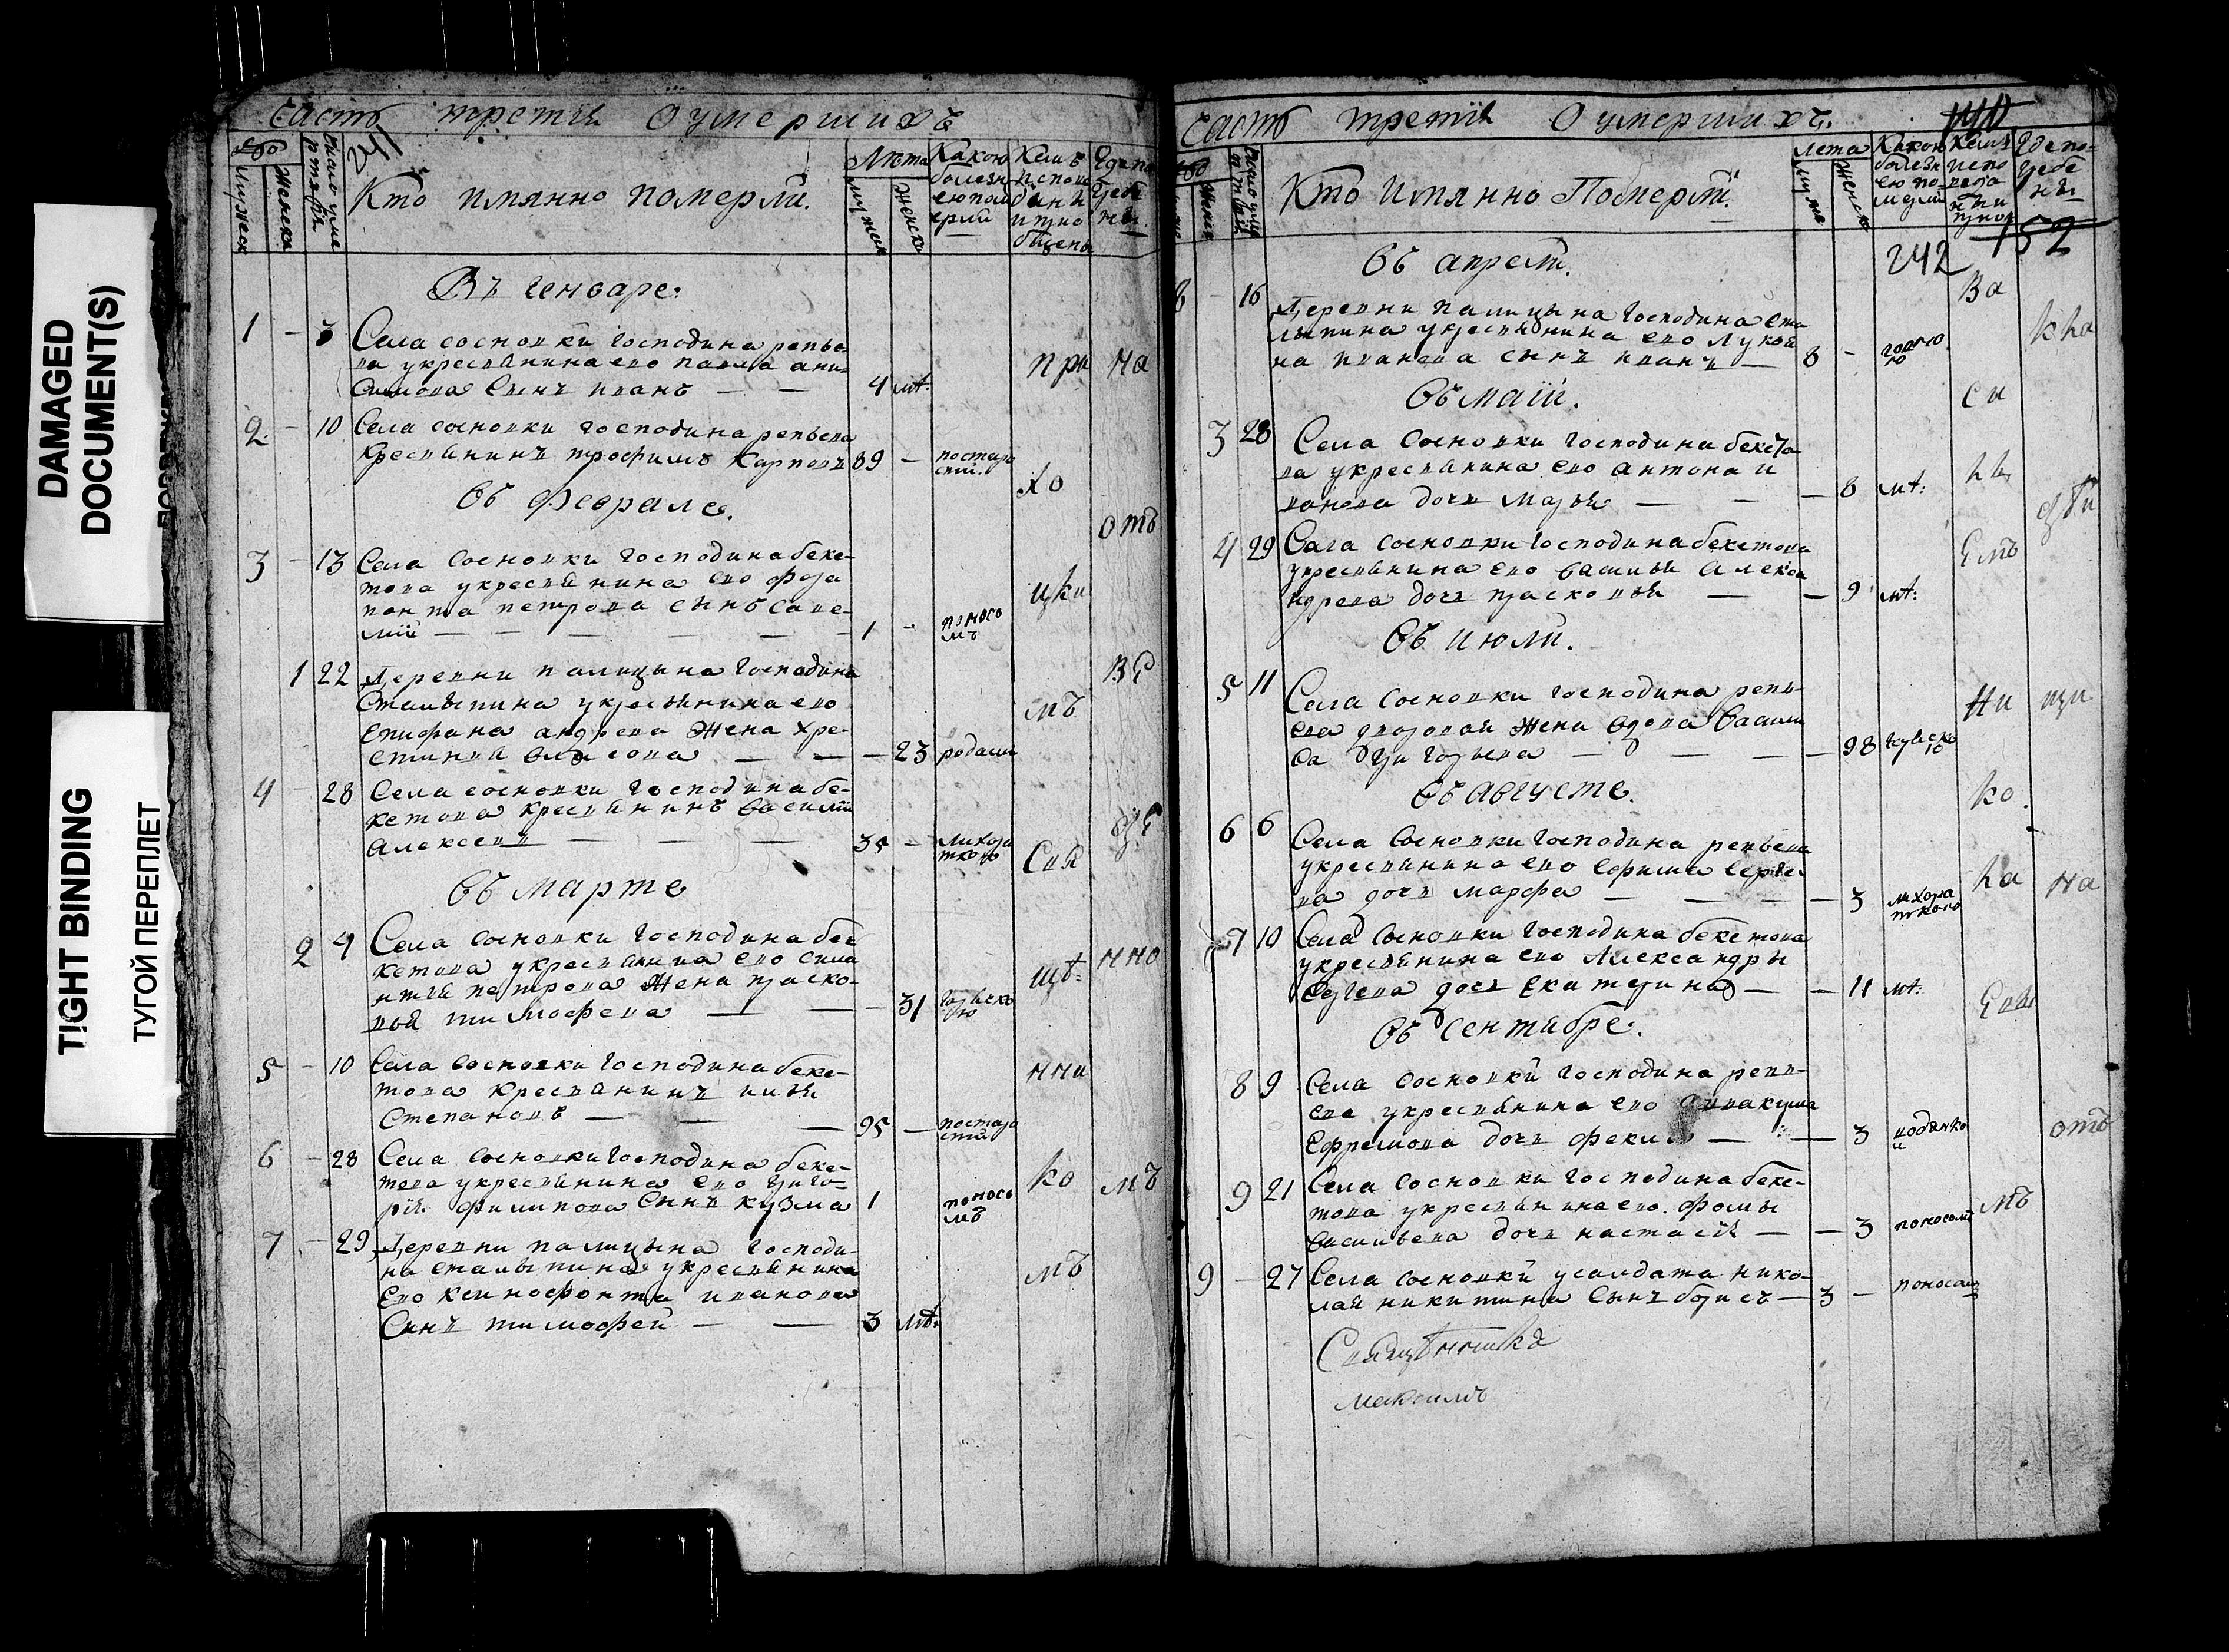 DAMAGED
DOCUMENT(S)
TIGHT BINDING
ТУГОЙ ПЕРЕПЛЕТ
Часть третия О умершихъ
241
Кто имянно померли.
Лѣта
Какою
болезн
ею пом
ерли
Кемъ
испове
даны
и прио
бщены
Где по
гребе
ны
Въ генваре.
1 - 3 Села сосновки господина репье-
ва у крестьянина его павла ани-
симова сынъ иванъ — — 4 лѣт:
2. - 10 Села сосновки господина репьева
Крестьянинъ трофимъ Карповъ 89 — по старо
сти.
Въ феврале.
3 - 13 Села Сосновки господина беке-
това у крестьянина его фера
понта петрова сынъ Саве-
лий — — — — 1 - поносо
мъ
1 22 Деревни палицына господина
Сталыпина у крестьянина его
Епифана андреева жена Хре-
стиния власова — — — 23 родами
4 - 28 Села сосновки господина бе-
кетова крестьянинъ василий
алексеевъ — — — 35 - лихора
ткою
Въ марте
2 4 Села Сосновки господина бек
кетова у крестьянина его сила
нтия петрова жена праско-
вья тимофеева — — — 31 горячко
ю
5 - 10 Села сосновки господина беке-
това крестьянинъ илья
Степановъ — — — 95 — по старо
сти
6 - 28 Села Сосновки господина беке-
това у крестьянина его григо-
рия филипова Сынъ кузма 1 поносо
мъ
7 - 29 Деревни палицына господи-
на сталыпина у крестьянина
Его ксинофонта иванова
Сынъ тимофей — — 3 лѣт:
при
хо
цки
мъ
Свя
щѣ
нни
ко
мъ
на
отъ
ве
де
нно
мъ
Часть третия О умершихъ.
Кто имянно Померли.
лета
Какою
болезн
ею по
мерли
Где по-
гребе
ны
242 152
Въ апрели.
8 - 16 Деревни палицына господина ста
лыпина у крестьянина его Лукоя
на иванова сынъ иванъ — 8 - горячко
ю
Въ маии.
3 28 Села Сосновки господина бекето
ва у крестьянина его антона и
ванова дочь Марья — — — 8 лѣт:
4 29 Села сосновки господина бекетова
у крестьянина его василья алекса
ндрева дочь прасковья — — 9 лѣт:
Въ июли.
5 11 Села сосновки господина репь-
ева дворовая жена вдова васили
са григорьева — — — 98 горячко
ю
Въ августе.
6 6 Села Сосновки господина репьева
у крестьянина его ефима сергее-
ва дочь марфа — — — 3 лихора
ткою
7 10 Села Сосновки господина бекетова
у крестьянина его Александры
Сергева дочь екатерина — — 11 лѣт:
Въ сентябре.
8 9 Села Сосновки господина репь-
ева у крестьянина его аввакума
Ефремова дочь — — 3
9 21 Села Сосновки господина беке-
това у крестьянина его фомы
Васильева дочь настасия — — 3 поносомъ
9 - 27 Села сосновки у салдата нико-
лая никитина Сынъ борисъ — 3 - поносомъ
Священникъ
максимъ